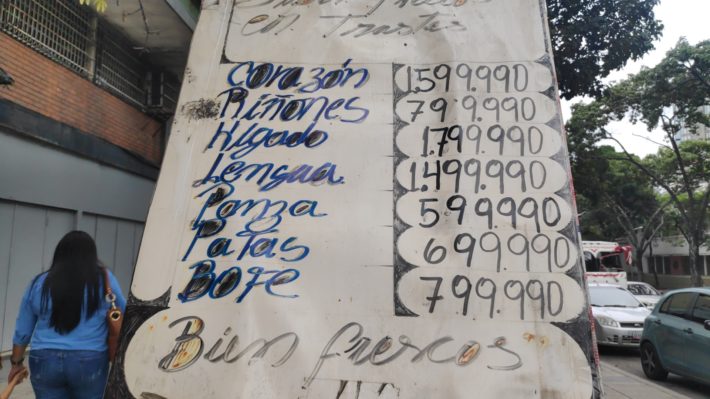 en Trastes
Corazón 1.599.990
Riñones 799.990
Higado 1.799.990
Lengua 1.499.990
Panza 599.990
Patas 699.990
Bofe 799.990
Bien frescos